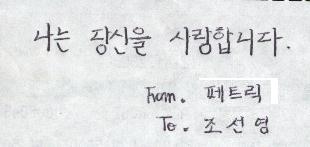 나는 당신을 사랑합니다.
From. 페트릭
To. 조선영